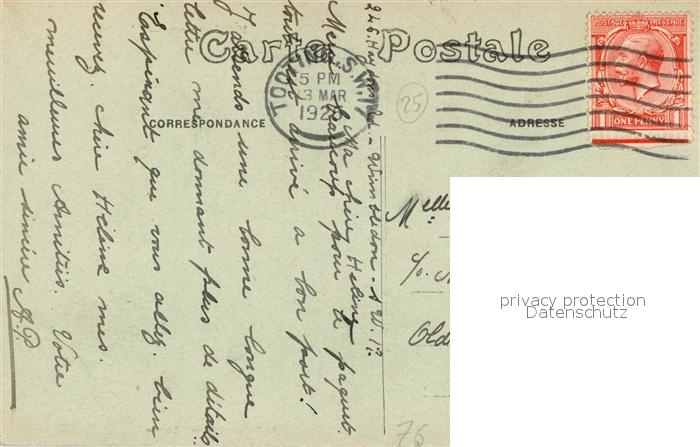 Carte Postale
CORRESPONDANCE
ADRESSE
TOOTING S.W.17
5 PM
3 MAR
192
POSTAGE REVENUE
ONE PENNY
25
Wimbledon. S.W.19.
Ma chère Hélène,
Merci beaucoup pour le paquet.
tout est arrivé à bon port!
J'attends une bonne longue
lettre me donnant plus de détails.
Espérant que vous allez bien
recevez, chère Hélène mes
meilleures Amitiés. Votre
amie sincère A.P.
Melle
c/o
Old
76
privacy protection
Datenschutz